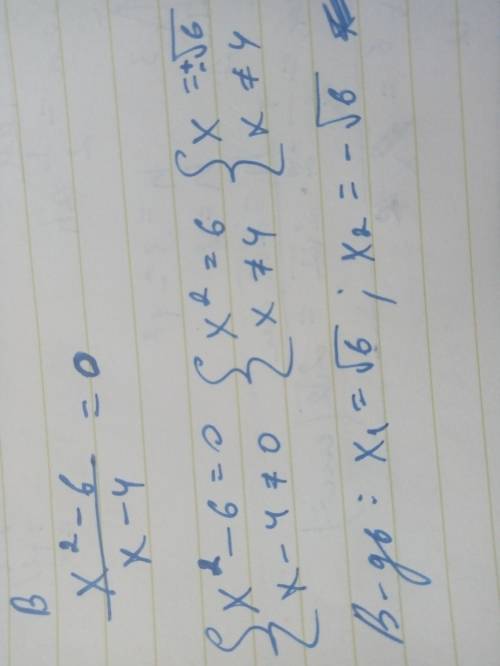 В
x² - 6 / x - 4 = 0
{ x² - 6 = 0 { x² = 6 { x = ±√6
{ x - 4 ≠ 0 { x ≠ 4 { x ≠ 4
В-дь: x₁ = √6 ; x₂ = -√6